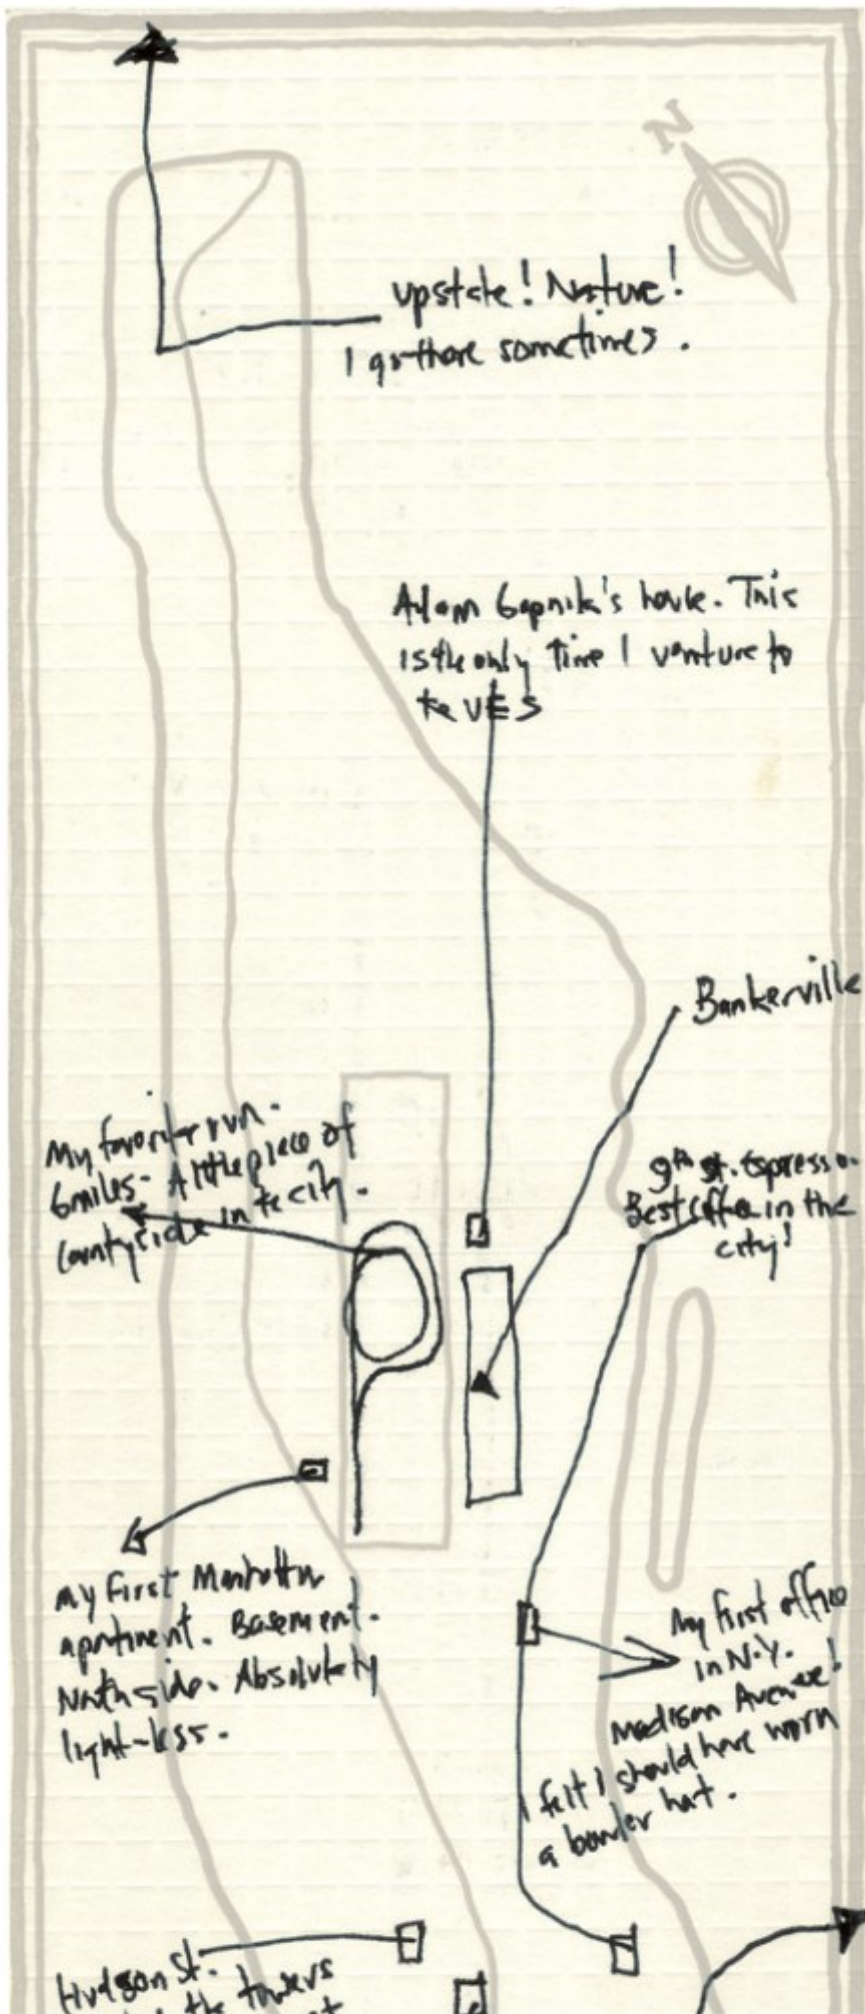 N
upstate! Nature!
I go there sometimes.
Adam Gopnik's house. This
is the only time I venture to
the UES
Bankerville
My favorite run.
6 miles. A little piece of
countryside in the city.
9th st. Espresso.
Best coffee in the
city!
My first Manhattan
apartment. Basement.
North side. Absolutely
light-less.
My first office
in N.Y.
Madison Avenue!
I felt I should have worn
a bowler hat.
Hudson St.
the towers